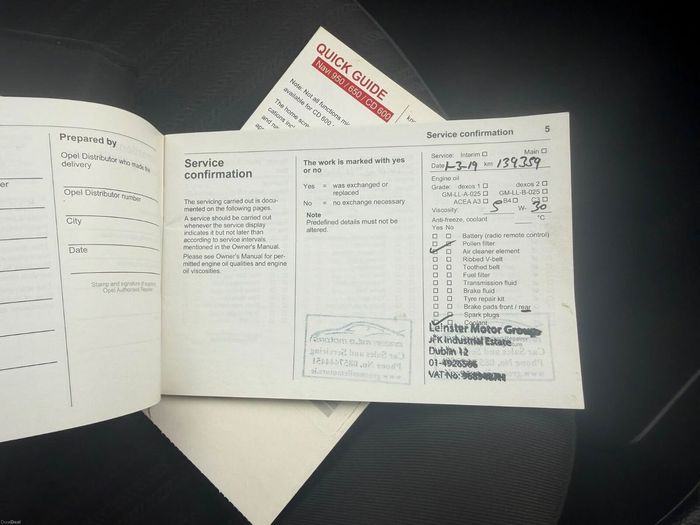 QUICK GUIDE
Navi 950 / 650 / CD 600
Note: Not all functions
available for CD 600
The home
er
Prepared by
Opel Distributor who made the
delivery
Opel Distributor number
City
Date
Stamp and signature
Opel Authorised Repairer
Service confirmation 5
Service
confirmation
The servicing carried out is docu-
mented on the following pages.
A service should be carried out
whenever the service display
indicates it but not later than
according to service intervals
mentioned in the Owner's Manual.
Please see Owner's Manual for per-
mitted engine oil qualities and engine
oil viscosities.
The work is marked with yes
or no
Yes = was exchanged or
replaced
No = no exchange necessary
Note
Predefined details must not be
altered.
Service: Interim Main
Date 1-3-19 km 139359
Engine oil
Grade: dexos 1 dexos 2
GM-LL-A-025 GM-LL-B-025
ACEA A3 B4 C3
Viscosity: 5 W- 30
Anti-freeze, coolant °C
Yes No
Battery (radio remote control)
Pollen filter
Air cleaner element
Ribbed V-belt
Toothed belt
Fuel filter
Transmission fluid
Brake fluid
Tyre repair kit
Brake pads front / rear
Spark plugs
Coolant
Leinster Motor Group
JFK Industrial Estate
Dublin 12
01-
VAT No:
Car Sales and Servicing
Phone No. 0857444451